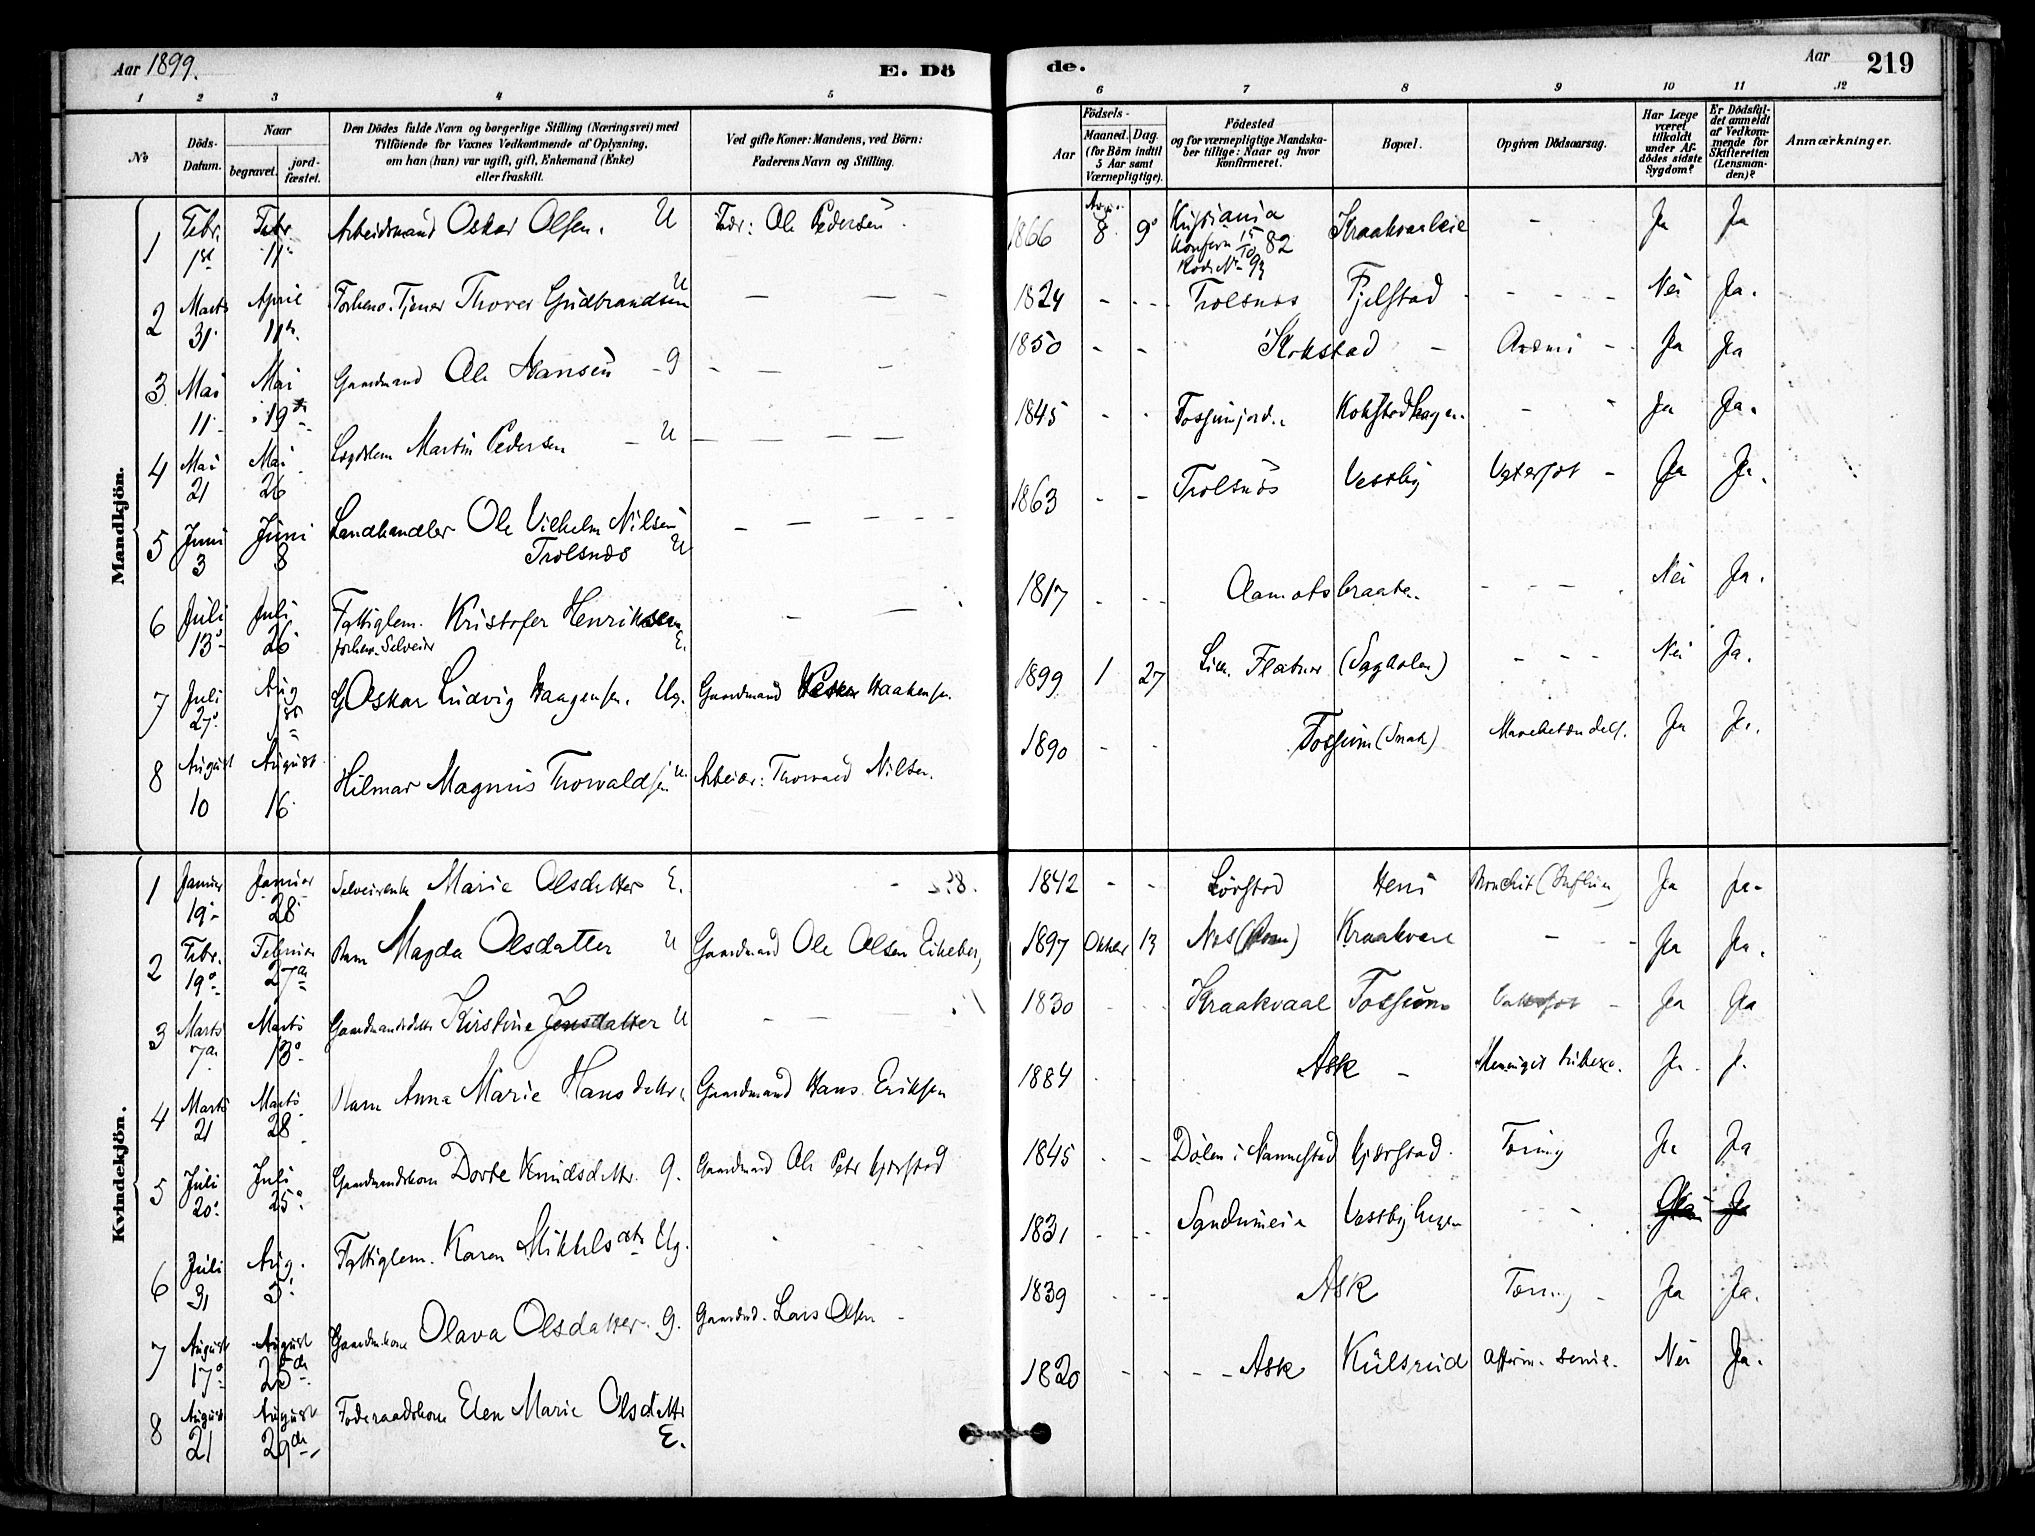 Aar 1899.
E. Dö
de.
Aar
219
1 2 3 4 5
6 7 8 9 10 11 12
No
Döds-
Datum.
Naar
begravet.
jord-
fæstet.
Den Dödes fulde Navn og borgerlige Stilling (Næringsvei) med
Tilföiende for Voxnes Vedkommende af Oplysning,
om han (hun) var ugift, gift, Enkemand (Enke)
eller fraskilt.
Ved gifte Koner: Mandens, ved Börn:
Faderens Navn og Stilling.
Aar
Födsels-
Maaned. Dag.
(for Börn indtil
5 Aar samt
Værnepligtige).
Födested
og for værnepligtige Mandska-
ber tillige: Naar og hvor
Konfirmeret.
Bopæl.
Opgiven Dödsaarsag.
Har Læge
været
tilkaldt
under Af-
dödes sidste
Sygdom?
Er Dödsfal-
det anmeldt
af Vedkom-
mende for
Skifteretten
(Lensman-
den)?
Anmærkninger.
Mandkjön.
1 Febr. 1st Febr. 11te Arbeidsmand Oskar Olsen. U Fader: Ole Pedersen. 1866 8 9 Kristiania Konfirm 15/10 82 Kraakvaaleie - Ja Ja
2 Marts 31 April 11te Forhenv. Tjener Thorer Gudbrandsen U - - - 1824 - - Trolsnæs Fjelstad - - - Nei Ja.
3 Mai 11 Mai 19de Gaardmand Ole Hansen - g - - - 1850 - - Kokstad - - Ja Ja
4 Mai 21 Mai 26 Lægdslem Martin Pedersen - U - - - - 1845 - - Fossumjord. Kokstadhagen. - - Ja Ja.
5 Juni 3 Juni 8 Landhandler Ole Vilhelm Nilsen Trolsnæs U - - - - 1863 - - Trolsnæs Vestby - Ja Ja.
6 Juli 13 Juli 26 Fattiglem. Kristofer Henriksen forhenv. Selveier E. - - 1817 - - - Aamotsbraaten. - - - Nei Ja.
7 Juli 27 Aug Oskar Ludvig Haagensen. Ug. Gaardmand Haakensen. 1899 1 27 Flatner (Sagdalen) - - - Nei Ja.
8 August 10 August 16 Hilmar Magnus Thorvaldsen U. Arbeider: Thorvald Nilsen. 1890 - - Fossum Ja Ja.
Kvindekjön.
1 Januar 19 Januar 28 Selveierenke Marie Olsdatter E. - 1842 - - Lörstad Heni Bronchit Ja Ja
2 Febr. 19 Februar 27de Barn Magda Olsdatter U Gaardmand Ole Olsen 1897 Oktbr 13 Næs Kraakvaal - - Ja Ja.
3 Marts 7de Marts 13 Gaardmandsdatter Kirstine Jensdatter U - - - 1830 - - Kraakvaal Fossum - Ja Ja
4 Marts 21 Marts 28 Barn Anna Marie Hansdatter Gaardmand Hans Eriksen 1884 - - Ask - Ja Ja
5 Juli 20 Juli 25 Gaardmandskone Dorte Knudsdatter. g. Gaardmand Ole Peter Kjærstad 1845 - - Dölen i Nannestad Kjærstad. Tæring Ja Ja
6 Juli 31 Aug. 5 Fattiglem. Karen Mikkelsdatr Ug. 1831 - - - Vestbyhagen - - Ja
7 August 17 August 25de Gaardmkone Olava Olsdatter. g. Gaardmd. Lars Olsen - 1839 - - - Ask Tæring - Ja Ja.
8 August 21 August 29de Föderaadskone Elen Marie Olsdatter E. 1820 - - - - Ask Kulsrud Nei Ja.